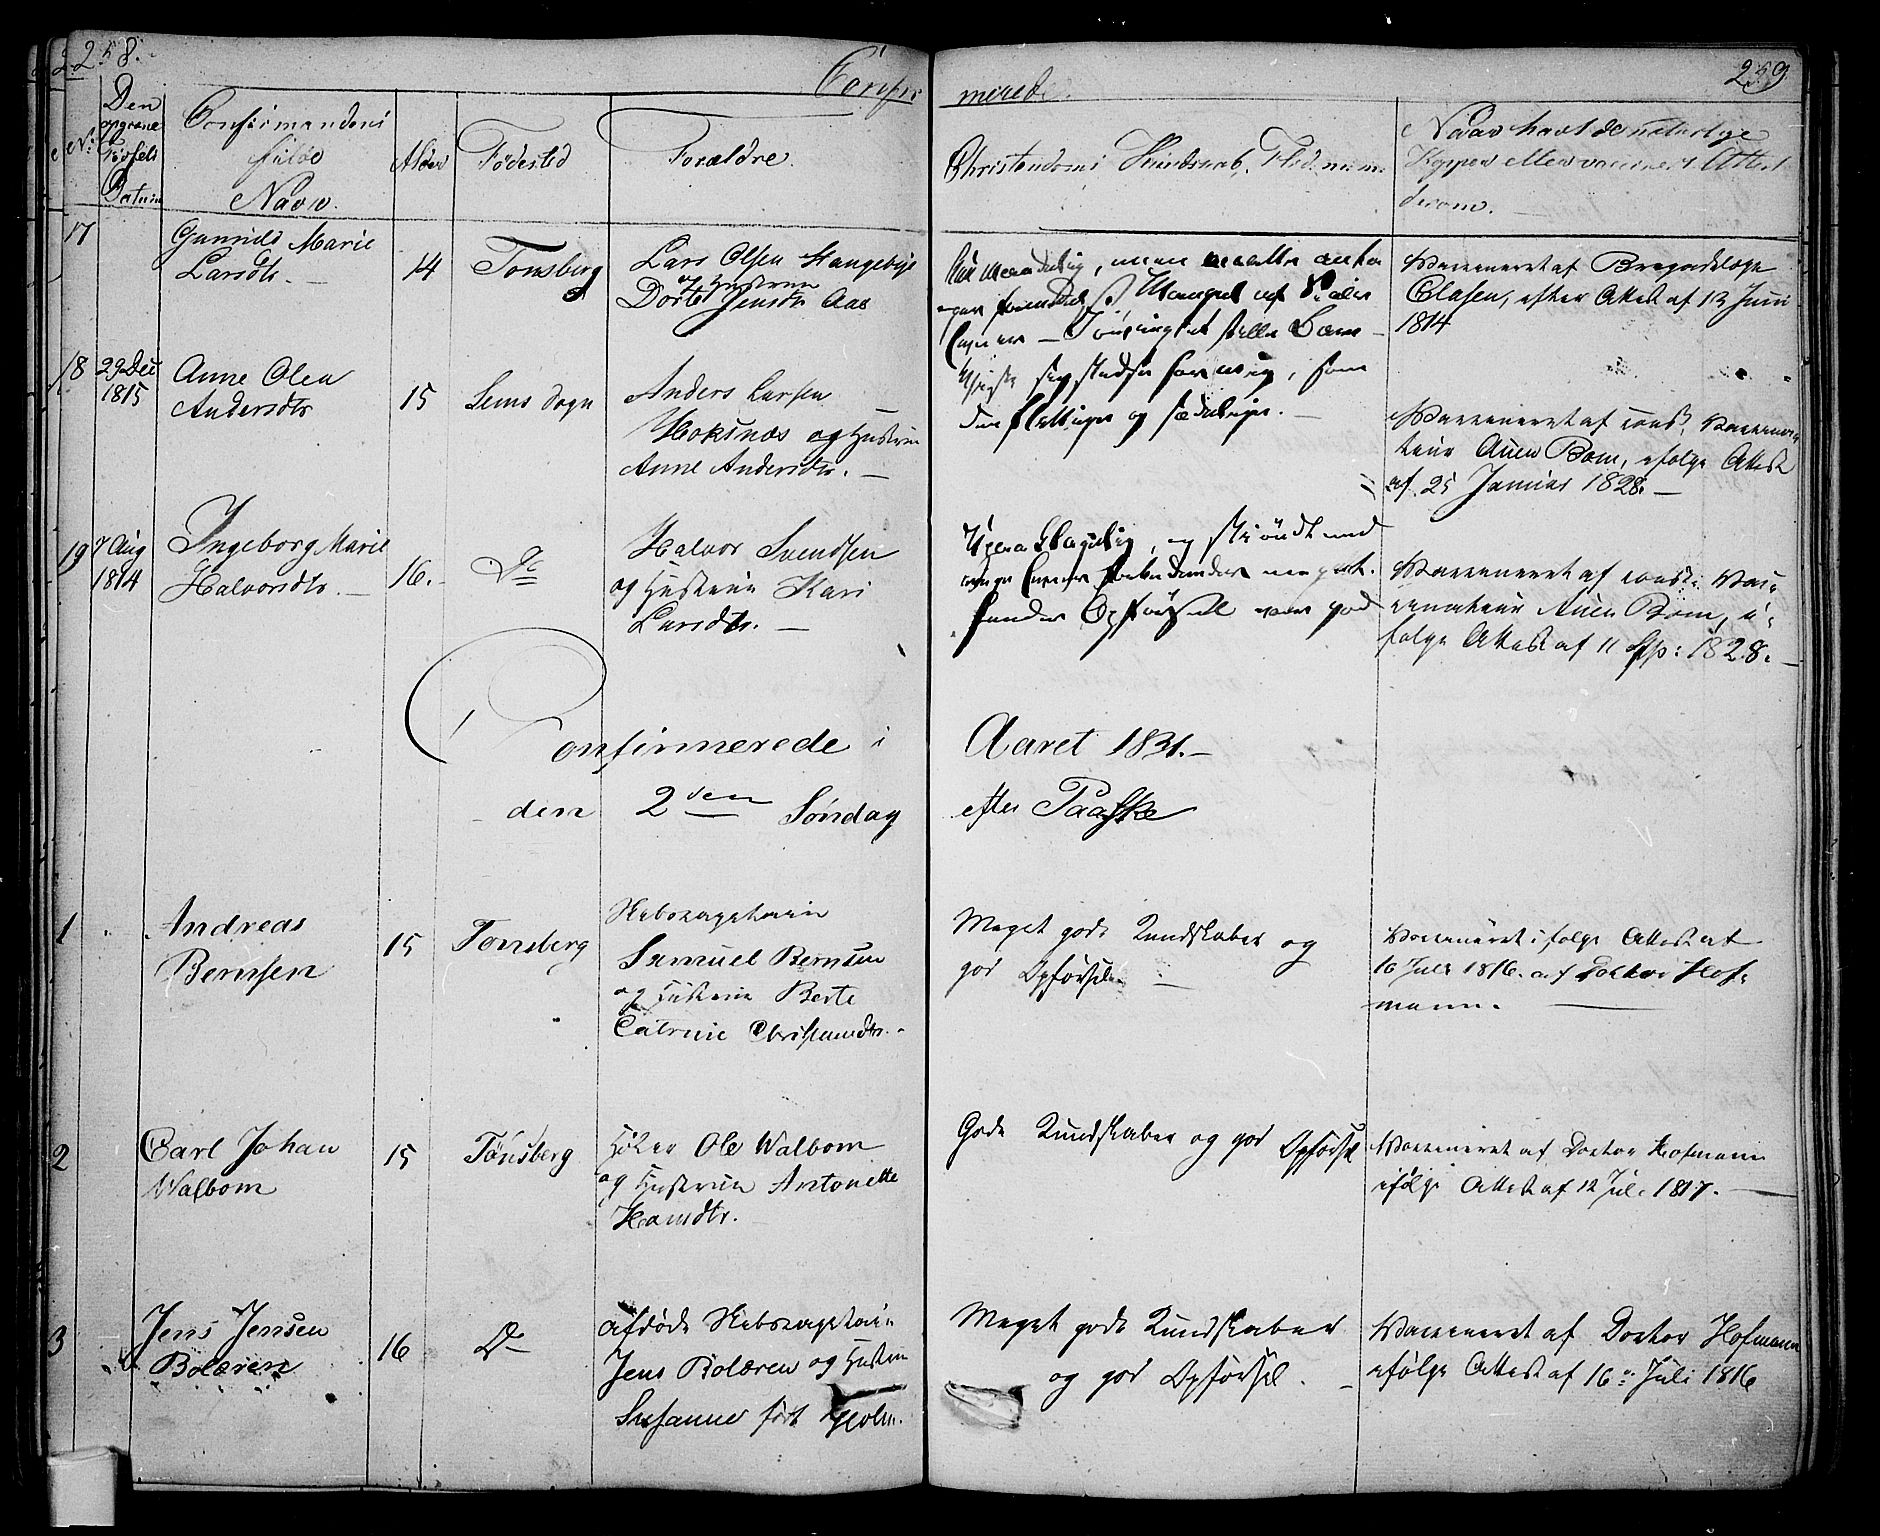 258.
Confir
Den opgivne Fødsels Datum
No
Confirmandens fulde Navn.
Alder
Fødested
Forældre.
17
Gunnild Marie
Larsdtr. —
14
Tønsberg
Lars Olsen Stangebye
og Hustrue
Dorte Jensdtr Aas
18
29 Dec
1815
Anne Olea
Andersdtr
15
Sems Sogn
Anders Larsen
og Hustrue
Anne Andersdtr. —
19
7 Aug
1814
Ingeborg Marie
Halvorsdtr. —
16.
Do
Halvor Svendsen
og Hustrue Kari
Larsdtr. —
Confirmerede i
den 2den Søndag
1
Andreas
Berntsen
15
Tønsberg
Samuel Berntsen
og Hustrue Berte
Catrine Christiansdtr. -
2
Carl Johan
Walbom
15
Tønsberg
Ole Walbom
og Hustrue Antonette
Hansdtr.
3
Jens Jensen
Bolæren
16
Do
afdøde
Jens Bolæren og Hustrue
Susanne født
259
merede.
Christendoms Kundskab, Flid
Naar havt de naturlige
Kopper eller vaccineret Attest
derom. —
Mangel af
sig stedse for mig, som
den flittige og sædelige. —
Vaccineret af
Clasen, efter Attest af 13 Juni
1814
Vaccineret af const. Vaccina-
teur Auen Bom, ifølge Attest
af 25 Januar 1828. —
og
Opførsel var god
Vaccineret af const: Vac-
cinateur Auen Bom, i-
følge Attest af 11 Sep: 1828. —
Aaret 1831. —
efter Paaske
Meget gode Kundskaber og
god Opførsel.
Vaccineret ifølge Attest af
16 Juli 1816. af Doctor Hof-
mann. —
Gode Kundskaber og god Opførsel
Vaccineret af Doctor Hofmann
ifølge Attest af 12 Juli 1817. —
Meget gode Kundskaber
og god Opførsel. —
Vaccineret af Doctor Hofmann
ifølge Attest af 16 Juli 1816